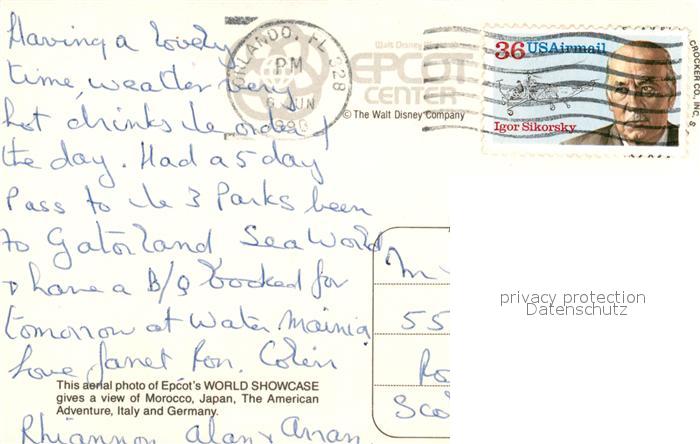 Having a lovely
time, weather very
hot drinks the order of
the day. Had a 5 day
Pass to the 3 Parks been
to Gatorland, Sea World
+ have a B/Q booked for
tomorrow at Water Mainia
Love Janet Ron. Colin
Rhiannon Alan +
This aerial photo of Epcot's WORLD SHOWCASE
gives a view of Morocco, Japan, The American
Adventure, Italy and Germany.
ORLANDO, FL 328
PM
6 JUN
Walt Disney
EPCOT
CENTER
© The Walt Disney Company
36 USAirmail
Igor Sikorsky
CROCKER CO., INC. S
55
privacy protection
Datenschutz